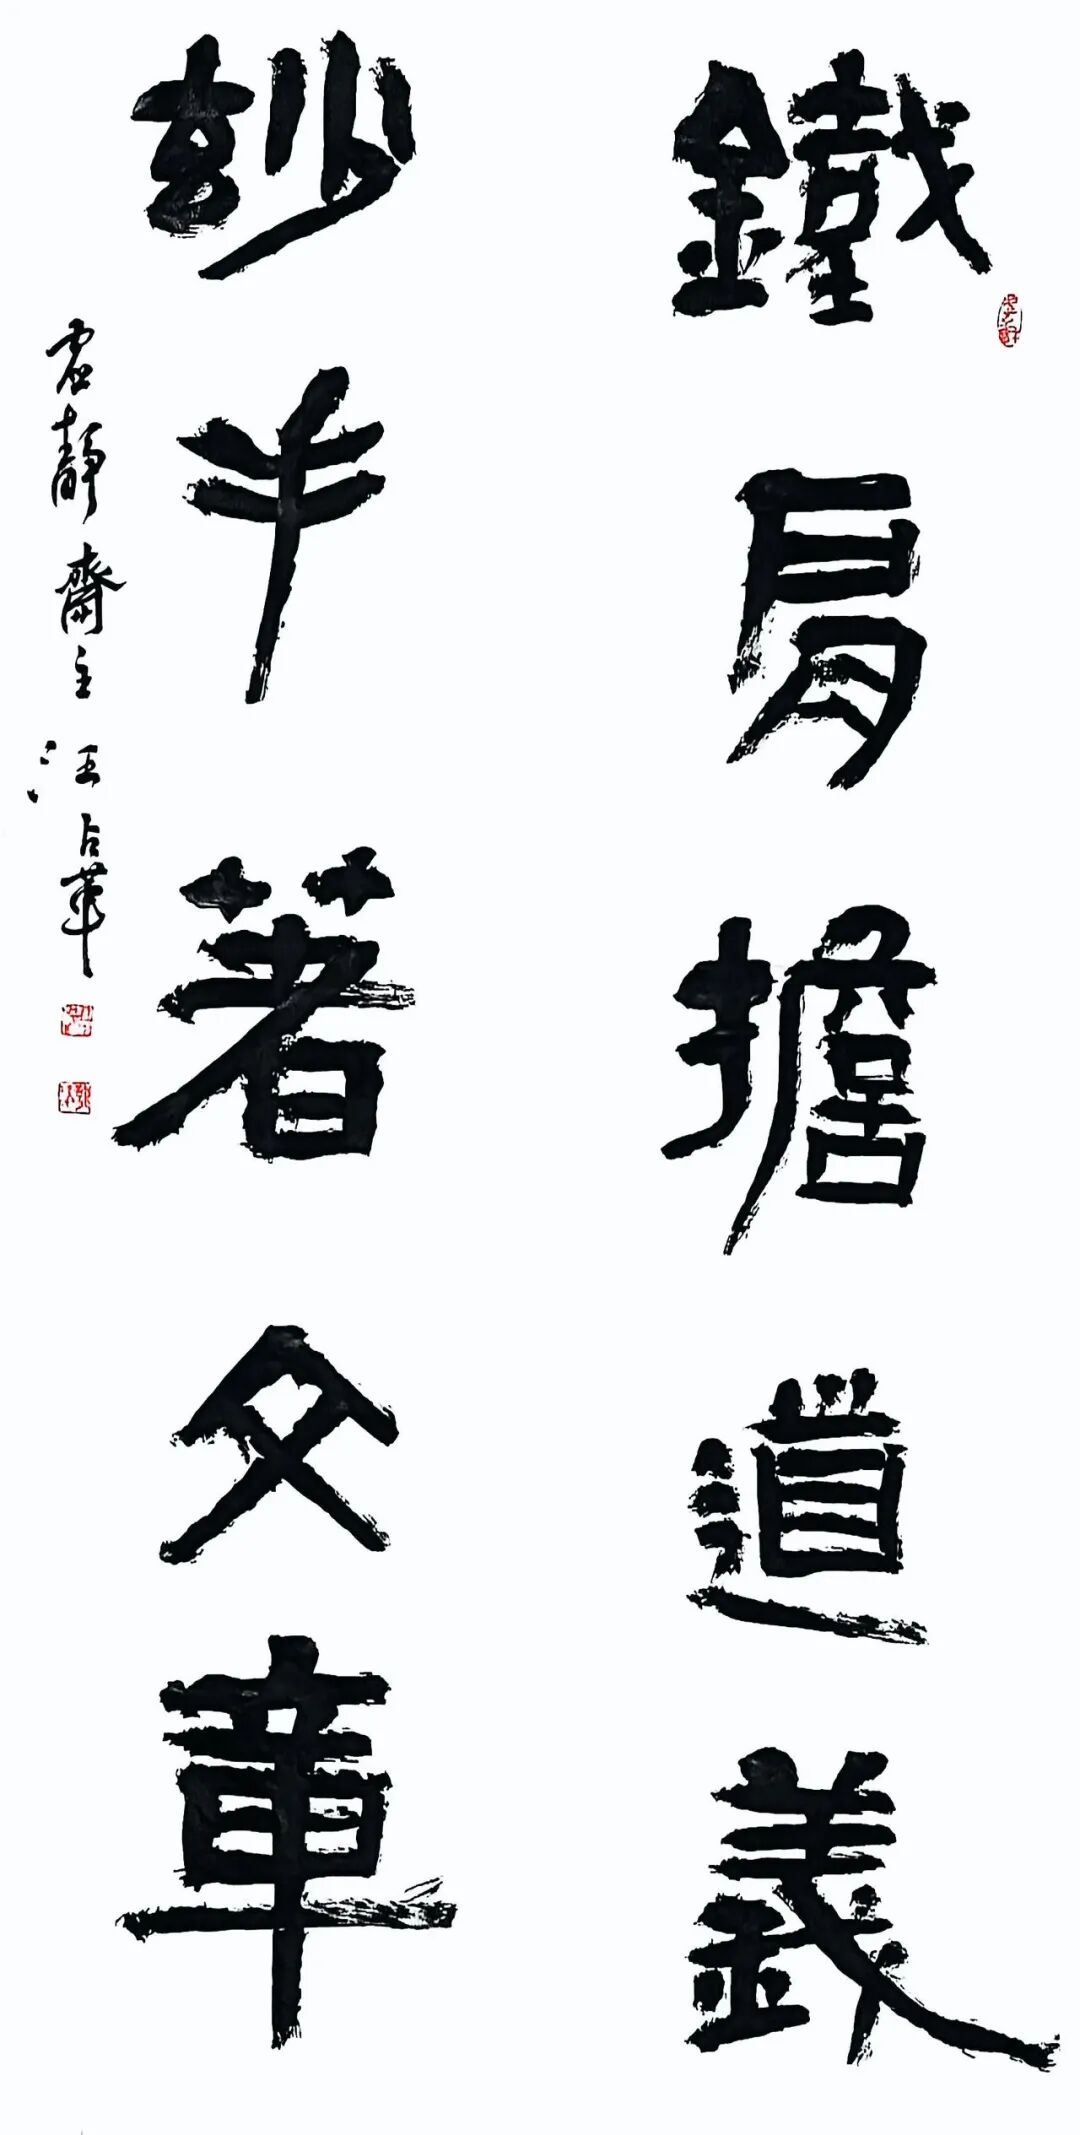 鐵肩擔道義
玅手著文章
虛靜齋主 汪占